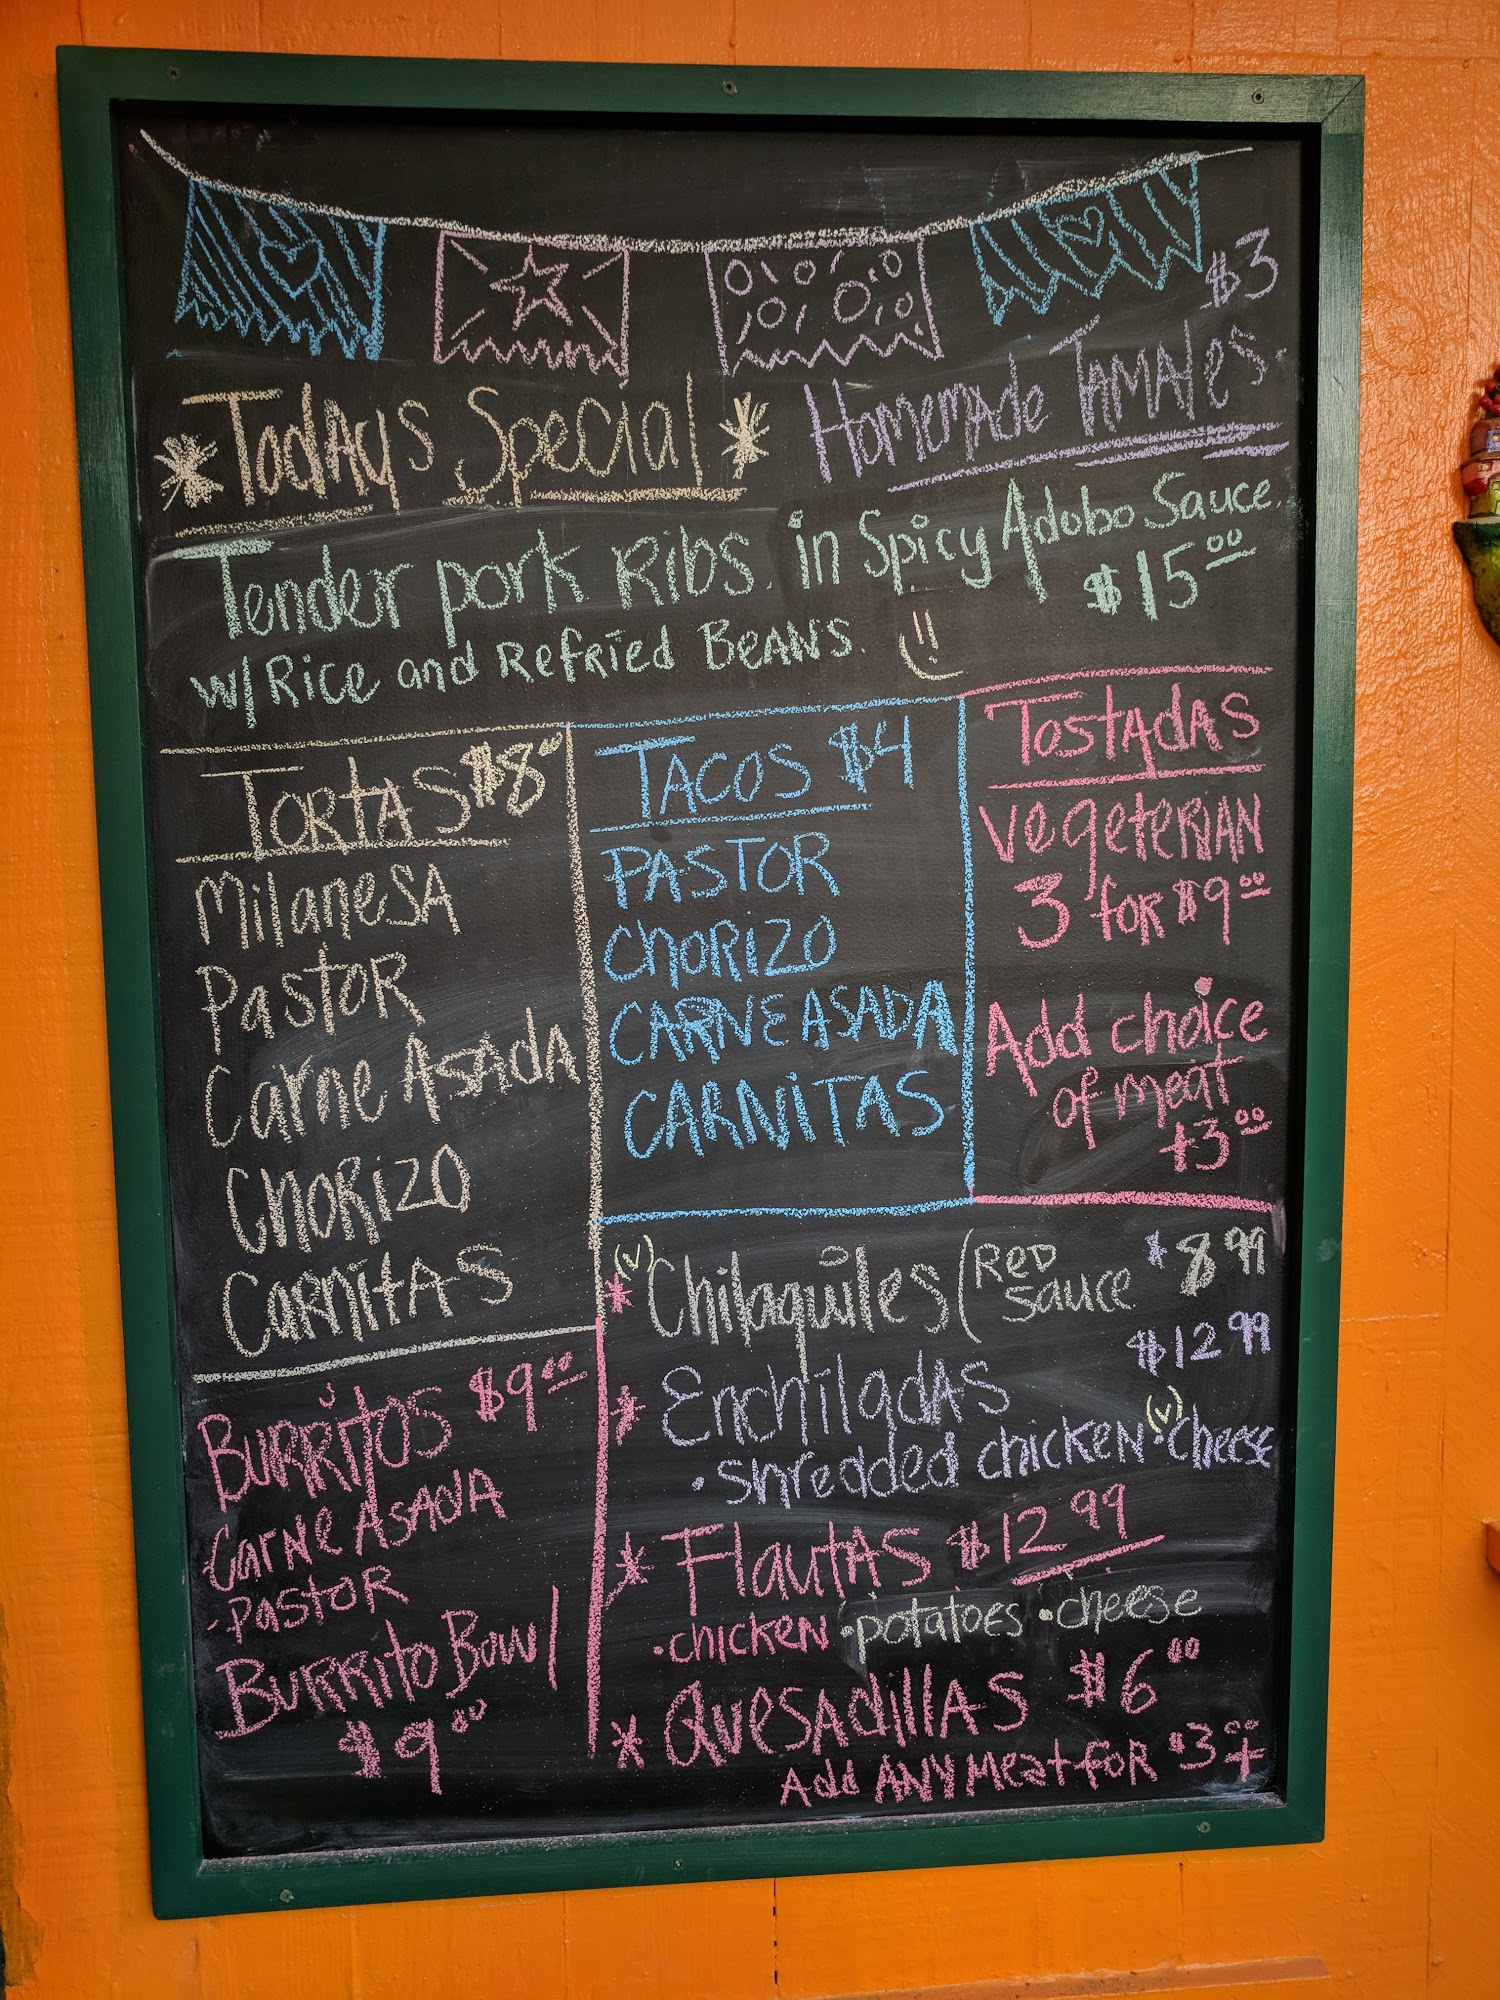 $3
*Todays Special* Homemade Tamales.
Tender pork Ribs. in Spicy Adobo Sauce.
$15.00
w/Rice and Refried Beans.
Tortas $8.00
Milanesa
Pastor
Carne Asada
Chorizo
Carnitas
Tacos $4
Pastor
Chorizo
Carne Asada
Carnitas
Tostadas
Vegeterian
3 for $9.00
Add choice
of meat
+3.00
Burritos $9.00
Carne Asada
·Pastor
Burrito Bowl
$9.00
(v)
*Chilaquiles (Red Sauce $8.99
$12.99
*Enchiladas
·shredded chicken ·(v) cheese
*Flautas $12.99
·chicken ·potatoes ·cheese
*Quesadillas $6.00
Add any meat for $3.00+